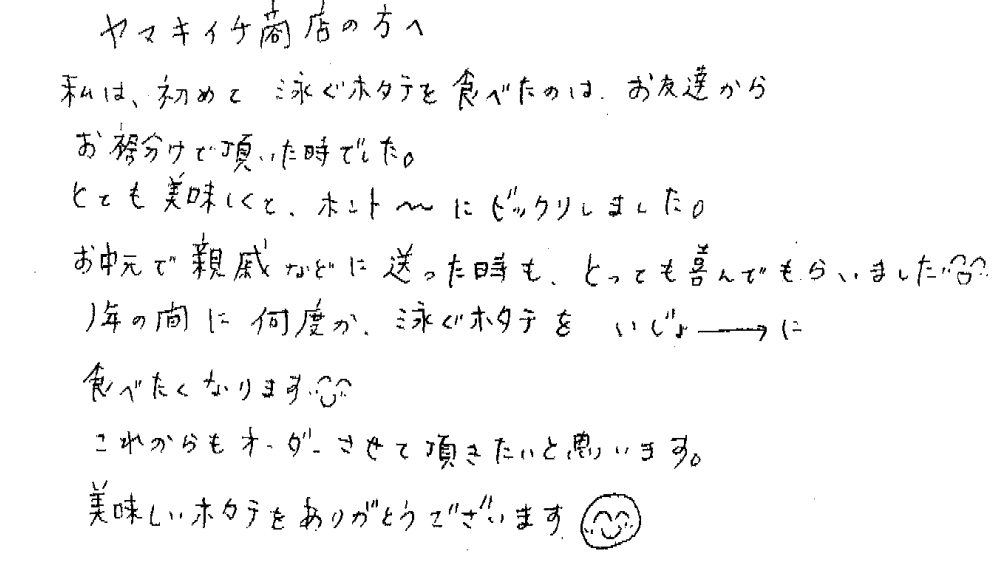 ヤマキイチ商店の方へ
私は、初めて 泳ぐホタテを食べたのは、お友達から
お裾分けで頂いた時でした。
とても美味しくて、ホント〜にビックリしました。
お中元で親戚などに送った時も、とっても喜んでもらいました
1年の間に何度か、泳ぐホタテを いじょ→に
食べたくなります
これからもオーダーさせて頂きたいと思います。
美味しいホタテをありがとうございます